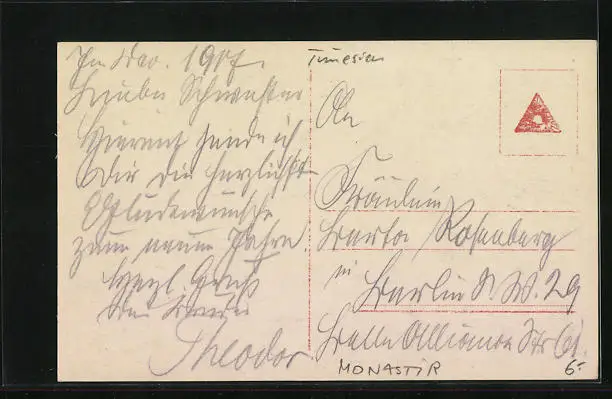 Im Dez. 1917.
Liebe Schwester
Hiermit sende ich
Dir die herzlichst
Glückwünsche
zum neuen Jahre.
Herzl. Gruß
Dein Bruder
Theodor
Tunesien
An
Fräulein
Berta Rosenberg
in
Berlin S.W. 29
Belle Alliance Str 61
MONASTIR
6.-